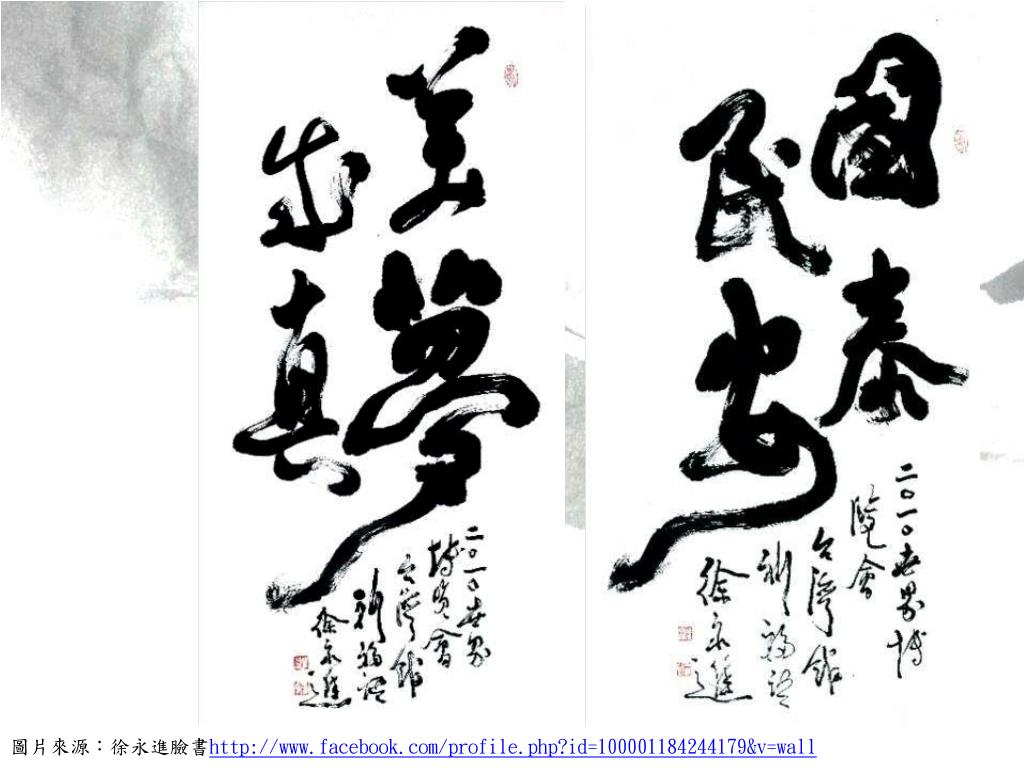 國泰
民安
二〇一〇世界博
覽會
台灣館
祈福語
徐永進
美夢
成真
二〇一〇世界
博覽會
台灣館
祈福語
徐永進
圖片來源：徐永進臉書http://www.facebook.com/profile.php?id=100001184244179&v=wall